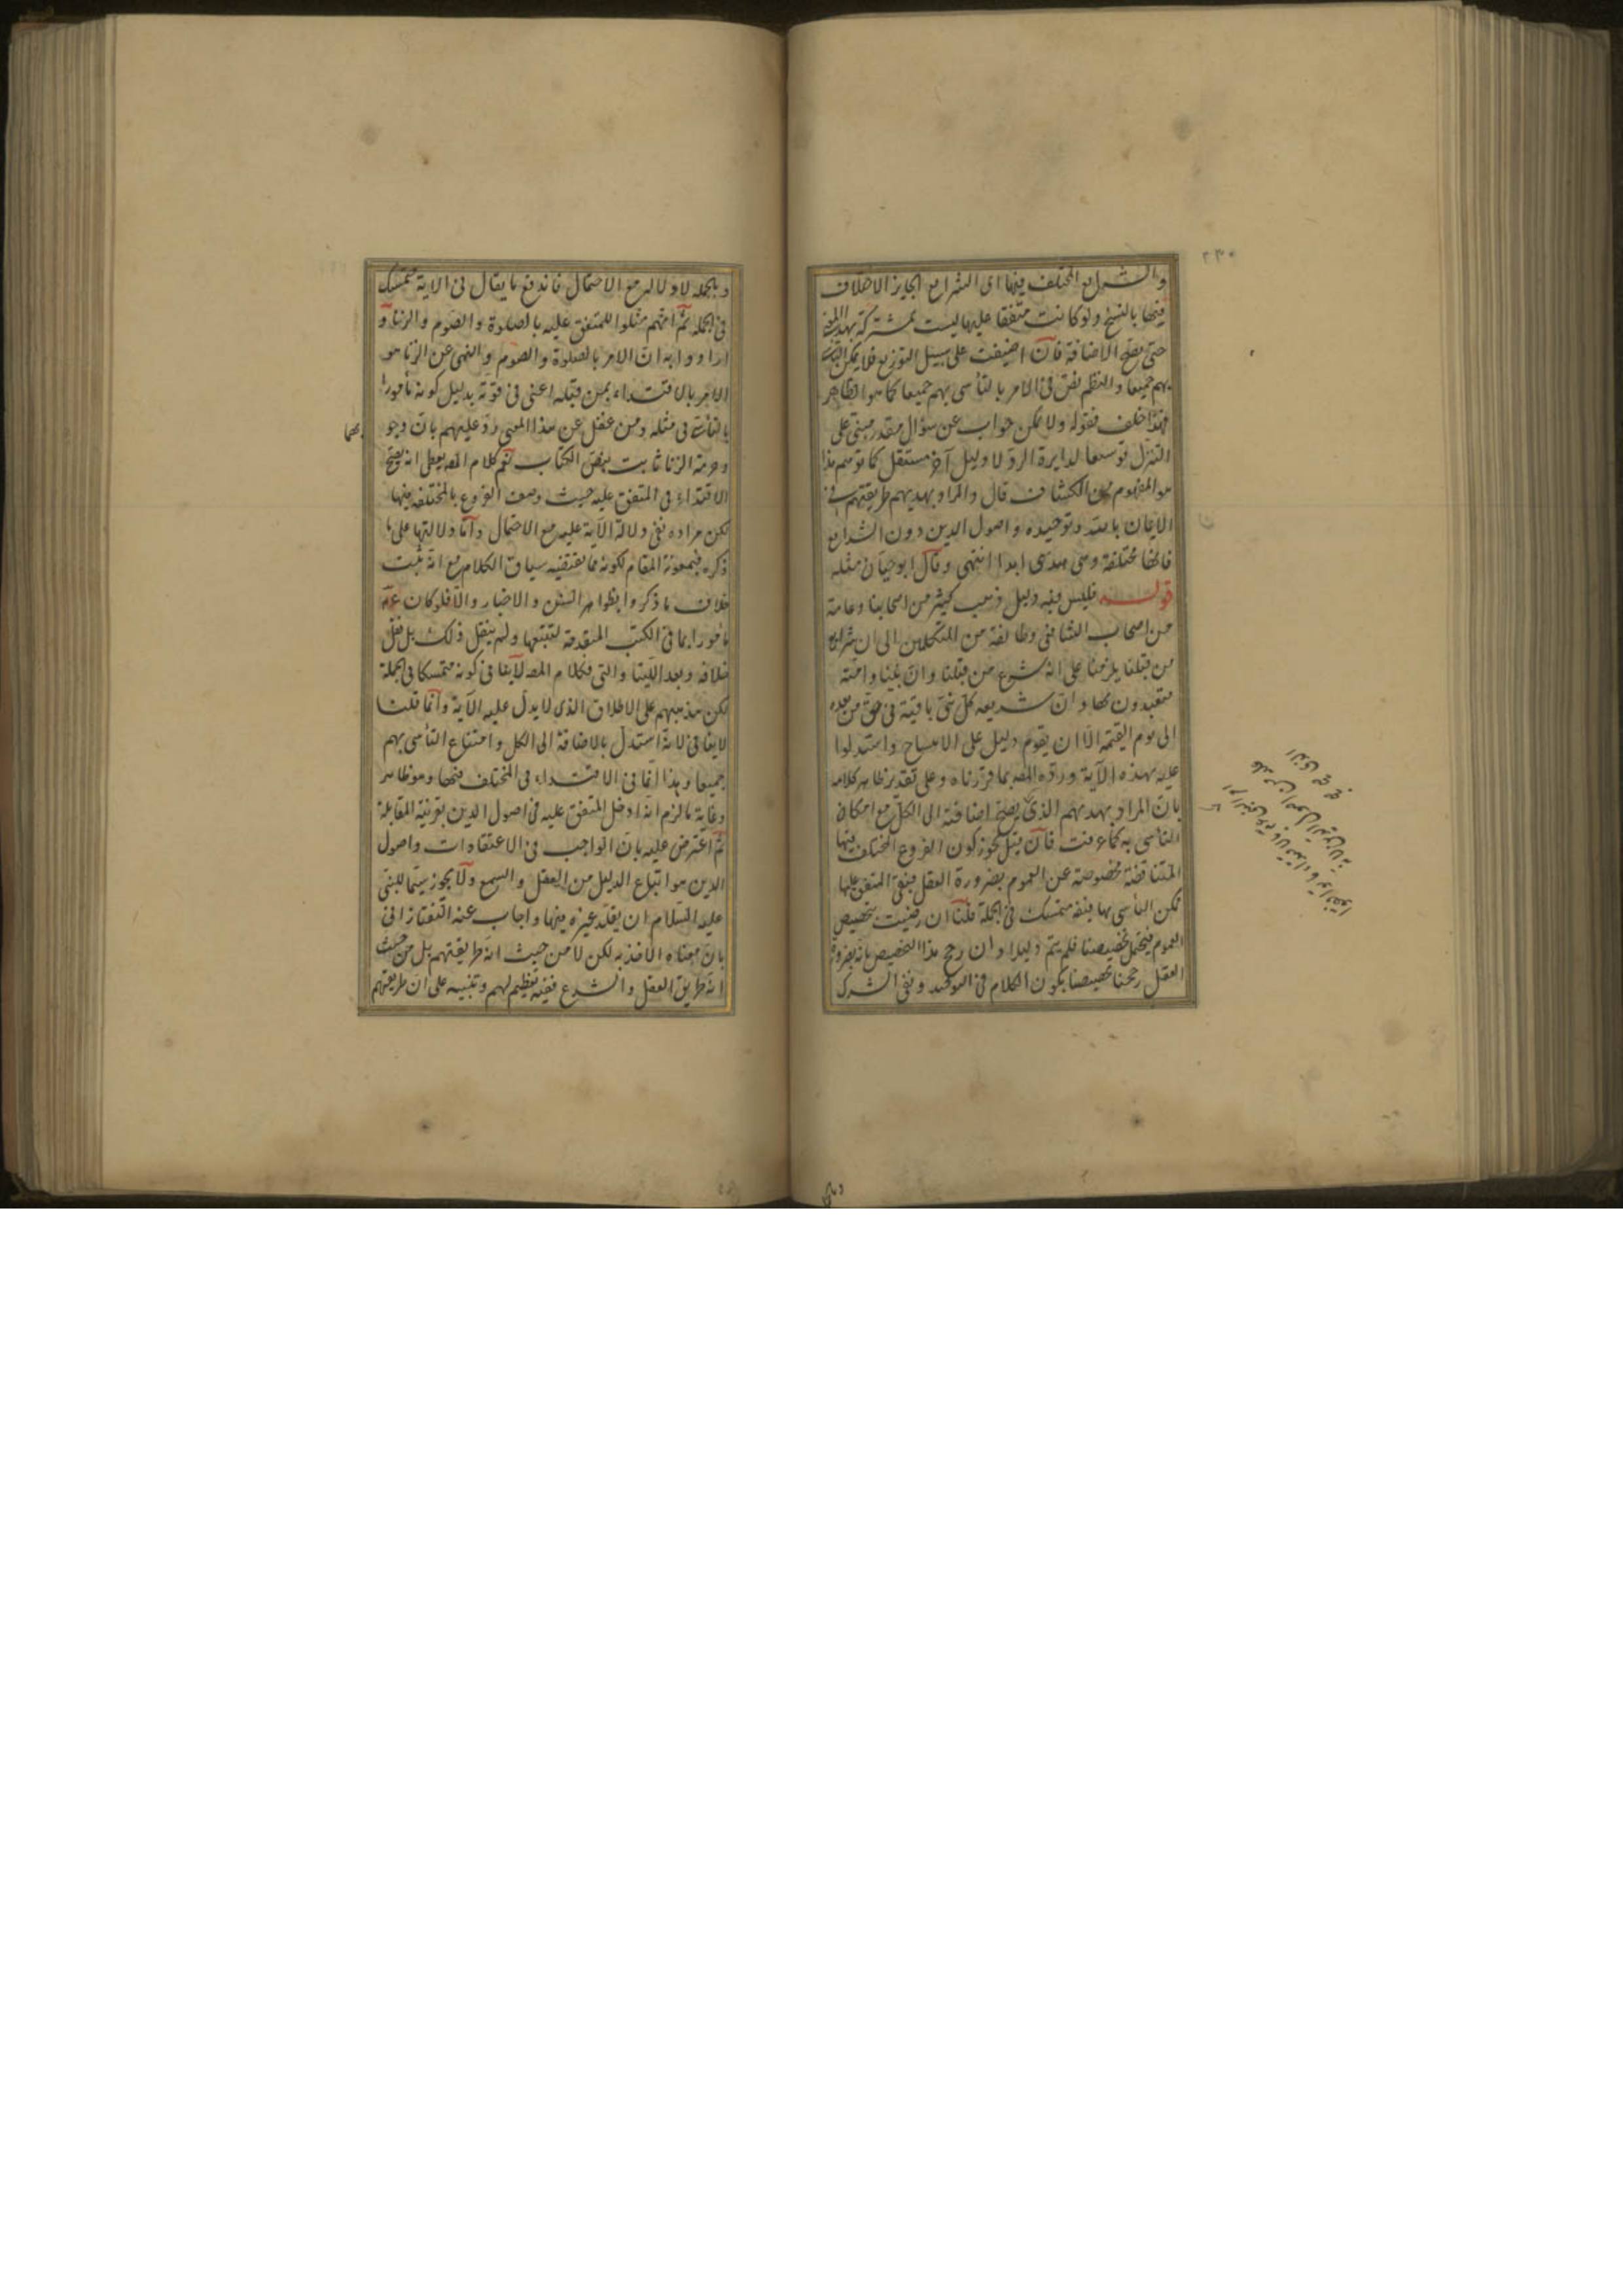 ٢٣٠
والشرايع المختلف فيها اى الشرايع الجايز الاختلاف
فيها بالنسخ ولو كانت متفقا عليها ليست بمشتركة بهذا المعنى
حتى يصح الاضافة فان اضيفت على سبيل التوزيع فلا يمكن التأسى
بهم جميعا والنظم نص فى الامر بالتأسى بهم جميعا كما هو الظاهر
فهذا خلف فقوله ولا يمكن جواب عن سؤال مقدر مبنى على
التنزل توسيعا لدايرة الرد لا دليل آخر مستقل كما توهم هذا
هو المفهوم من الكشاف قال والمراد بهديهم طريقتهم فى
الايمان بالله وتوحيده واصول الدين دون الشرايع
فانها مختلفة وهى هدى ابدا انتهى وقال ابو حيان مثله
قوله فليس فيه دليل ذهب كثير من اصحابنا وعامة
من اصحاب الشافعى وطائفة من المتكلمين الى ان شرايع
من قبلنا يلزمنا على انه شرع من قبلنا وان نبينا وامته
متعبدون بها وان شريعة كل نبى باقية فى حق من بعده
الى يوم القيمة الا ان يقوم دليل على الانتساخ واستدلوا
عليه بهذه الآية ورده المص بما قررناه وعلى تقدير ظاهر كلامه
بان المراد بهديهم الذى يصح اضافته الى الكل مع امكان
التأسى به كما عرفت فان قيل نجوز كون الفروع المختلف فيها
المتناقضة مخصوصة عن العموم بضرورة العقل فبقى المتفق عليها
يمكن التأسى بها ففيه متمسك فى الجملة قلنا ان رضيت تخصيص
العموم فيحتمل تخصيصنا فلم يتم دليلا وان رجح هذا التخصيص بانه بضرورة
العقل رجحنا تخصيصنا بكون الكلام فى التوحيد ونفى الشرك
وبالجملة لا دلالة مع الاحتمال فاندفع ما يقال فى الآية متمسك
فى الجملة ثم انهم مثلوا للمتفق عليه بالصلوة والصوم والزنا و
ارادوا به ان الامر بالصلوة والصوم والنهى عن الزنا هو
الامر بالاقتداء بمن قبله اعنى فى قوته بدليل كونه مأمورا
بالتأسى فى مثله ومن غفل عن هذا المعنى رد عليهم بان وجو
بهما
وحرمة الزنا ثابت بنص الكتاب نعم كلام المص يعطى انه يصح
الاقتداء فى المتفق عليه حيث وصف الفروع بالمختلف فيها
لكن مراده نفى دلالة الآية عليه مع الاحتمال واما دلالتها على ما
ذكره فبمعونة المقام لكونه مما يقتضيه سياق الكلام مع انه ثبت
خلاف ما ذكروا بظواهر السنن والاخبار والا فلو كان عم
مأمورا بما فى الكتب المتقدمة لتتبعها ولم ينقل ذلك بل نقل
خلافه وبعد اللتيا والتى فكلام المص لا ينافى كونه متمسكا فى الجملة
لكن مذهبهم على الاطلاق الذى لا يدل عليه الآية وانما قلنا
لا ينافى لانه استدل بالاضافة الى الكل وامتناع التأسى بهم
جميعا وهذا انما فى الاقتداء فى المختلف فيها وهو ظاهر
وغاية ما لزم انه ادخل المتفق عليه فى اصول الدين بقرينة المقابلة
ثم اعترض عليه بان الواجب فى الاعتقادات واصول
الدين هو اتباع الدليل من العقل والسمع ولا يجوز سيما للنبى
عليه السلام ان يقلد غيره فيها واجاب عنه التفتازانى
بان معناه الاخذ به لكن لا من حيث انه طريقتهم بل من حيث
انه طريق العقل والشرع ففيه تعظيم لهم وتنبيه على ان طريقتهم